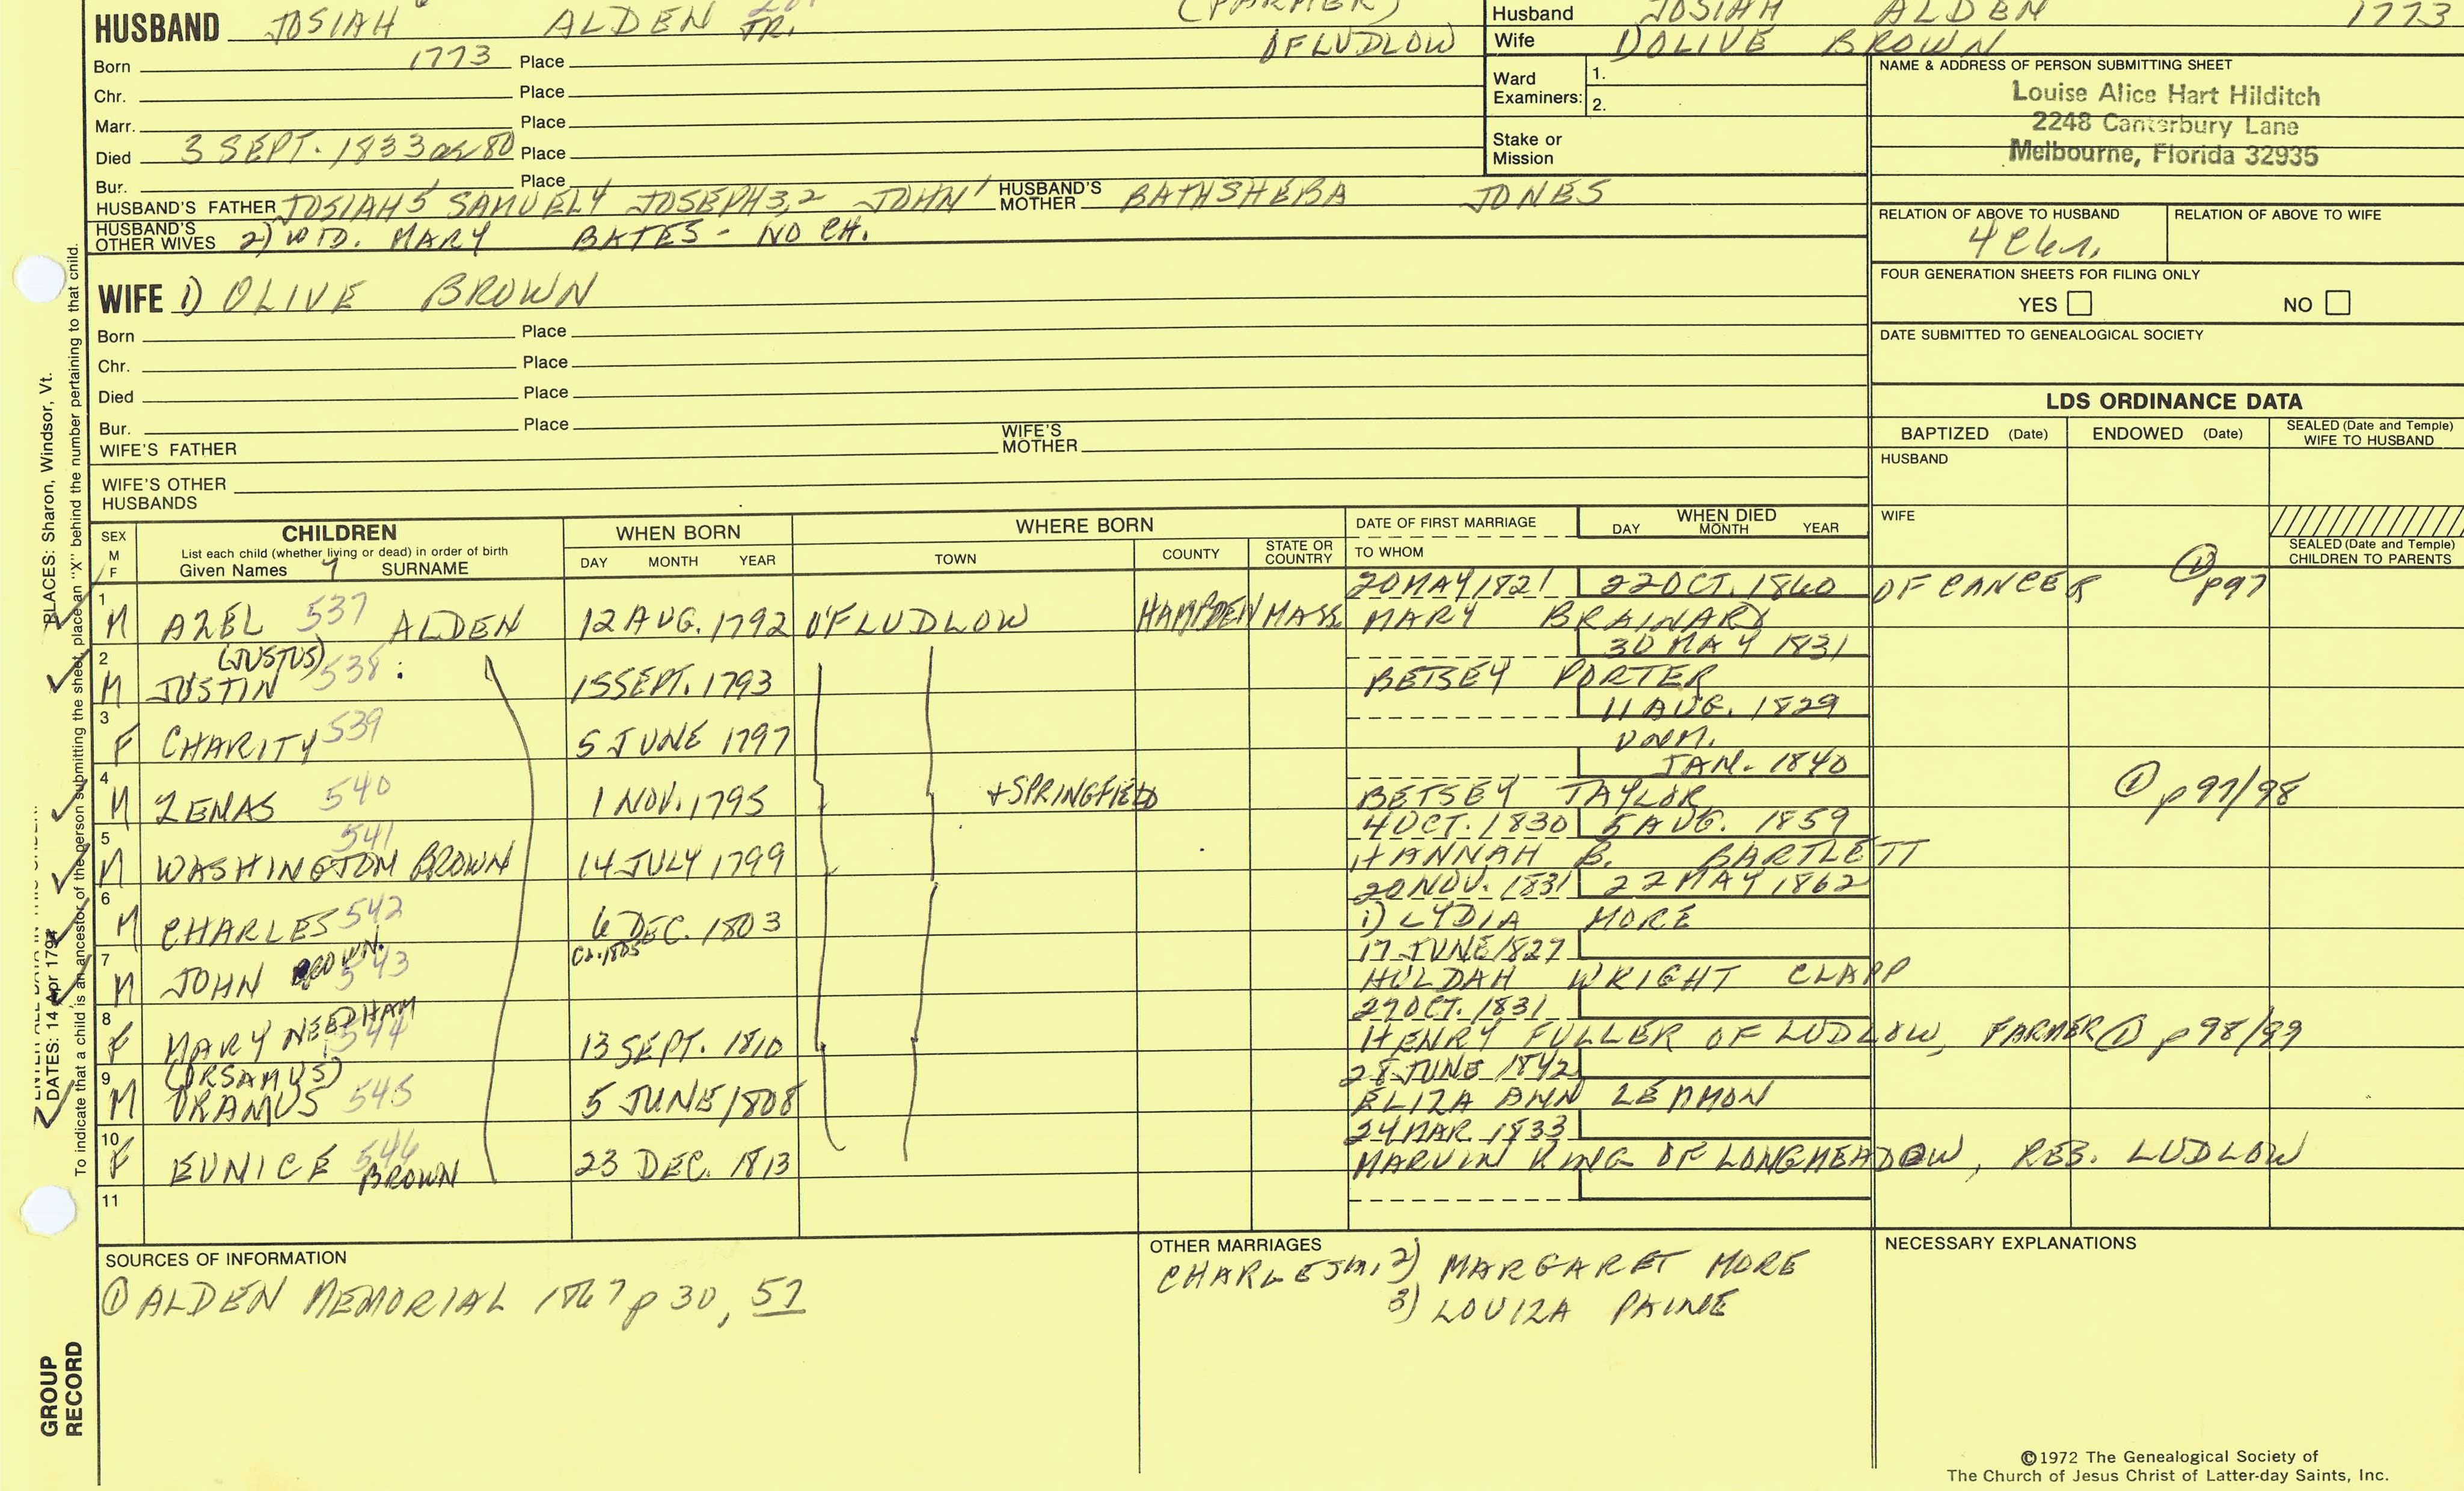 HUSBAND JOSIAH 6 ALDEN JR. (FARMER)
Born 1773 Place OF LUDLOW
Chr. Place
Marr. Place
Died 3 SEPT. 1833 ae 80 Place
Bur. Place
HUSBAND'S FATHER JOSIAH 5 SAMUEL 4 JOSEPH 3,2 JOHN 1 HUSBAND'S MOTHER BATHSHEBA JONES
HUSBAND'S OTHER WIVES 2) WID. MARY BATES - NO CH.
WIFE 1) OLIVE BROWN
Born Place
Chr. Place
Died Place
Bur. Place
WIFE'S FATHER WIFE'S MOTHER
WIFE'S OTHER HUSBANDS
Husband JOSIAH ALDEN 1773
Wife 1) OLIVE BROWN
Ward Examiners: 1. 2.
Stake or Mission
NAME & ADDRESS OF PERSON SUBMITTING SHEET
Louise Alice Hart Hilditch
2248 Canterbury Lane
Melbourne, Florida 32935
RELATION OF ABOVE TO HUSBAND RELATION OF ABOVE TO WIFE
FOUR GENERATION SHEETS FOR FILING ONLY
YES NO
DATE SUBMITTED TO GENEALOGICAL SOCIETY
LDS ORDINANCE DATA
BAPTIZED (Date) ENDOWED (Date) SEALED (Date and Temple) WIFE TO HUSBAND
HUSBAND
WIFE
SEALED (Date and Temple) CHILDREN TO PARENTS
SEX M F CHILDREN WHEN BORN WHERE BORN DATE OF FIRST MARRIAGE WHEN DIED
List each child (whether living or dead) in order of birth DAY MONTH YEAR
Given Names 7 SURNAME DAY MONTH YEAR TOWN COUNTY STATE OR COUNTRY TO WHOM
20 MAY 1821 22 OCT. 1860 OF CANCER ① p97
1 M AZEL 537 ALDEN 12 AUG. 1792 OF LUDLOW HAMPDEN MASS. MARY BRAINARD
(JUSTUS) 30 MAY 1831
2 M JUSTIN 538 15 SEPT. 1793 BETSEY PORTER
11 AUG. 1829
3 F CHARITY 539 5 JUNE 1797 UNM.
JAN. 1840
4 M ZENAS 540 1 NOV. 1795 + SPRINGFIELD BETSEY TAYLOR ① p97/98
541 4 OCT. 1830 5 AUG. 1859
5 M WASHINGTON BROWN 14 JULY 1799 HANNAH B. BARTLETT
20 NOV. 1831 22 MAY 1862
6 M CHARLES 542 6 DEC. 1803 1) LYDIA MORE
Ca. 1805 17 JUNE 1827
7 M JOHN BROWN 543 HULDAH WRIGHT CLAPP
27 OCT. 1831
8 F MARY NEEDHAM 544 13 SEPT. 1810 HENRY FULLER OF LUDLOW, FARMER ① p98/99
(ORSAMUS) 28 JUNE 1842
9 M ORAMUS 545 5 JUNE 1808 ELIZA ANN LEMMON
24 MAR. 1833
10 F EUNICE BROWN 546 23 DEC. 1813 MARVIN KING OF LONGMEADOW, RES. LUDLOW
11
SOURCES OF INFORMATION
① ALDEN MEMORIAL 1867 p 30, 57
OTHER MARRIAGES
CHARLES m. 2) MARGARET MORE
3) LOUIZA PAINE
NECESSARY EXPLANATIONS
©1972 The Genealogical Society of
The Church of Jesus Christ of Latter-day Saints, Inc.
PLACES: Sharon, Windsor, Vt.
DATES: 14 Apr 1794
To indicate that a child is an ancestor of the person submitting the sheet, place an "X" behind the number pertaining to that child.
GROUP RECORD